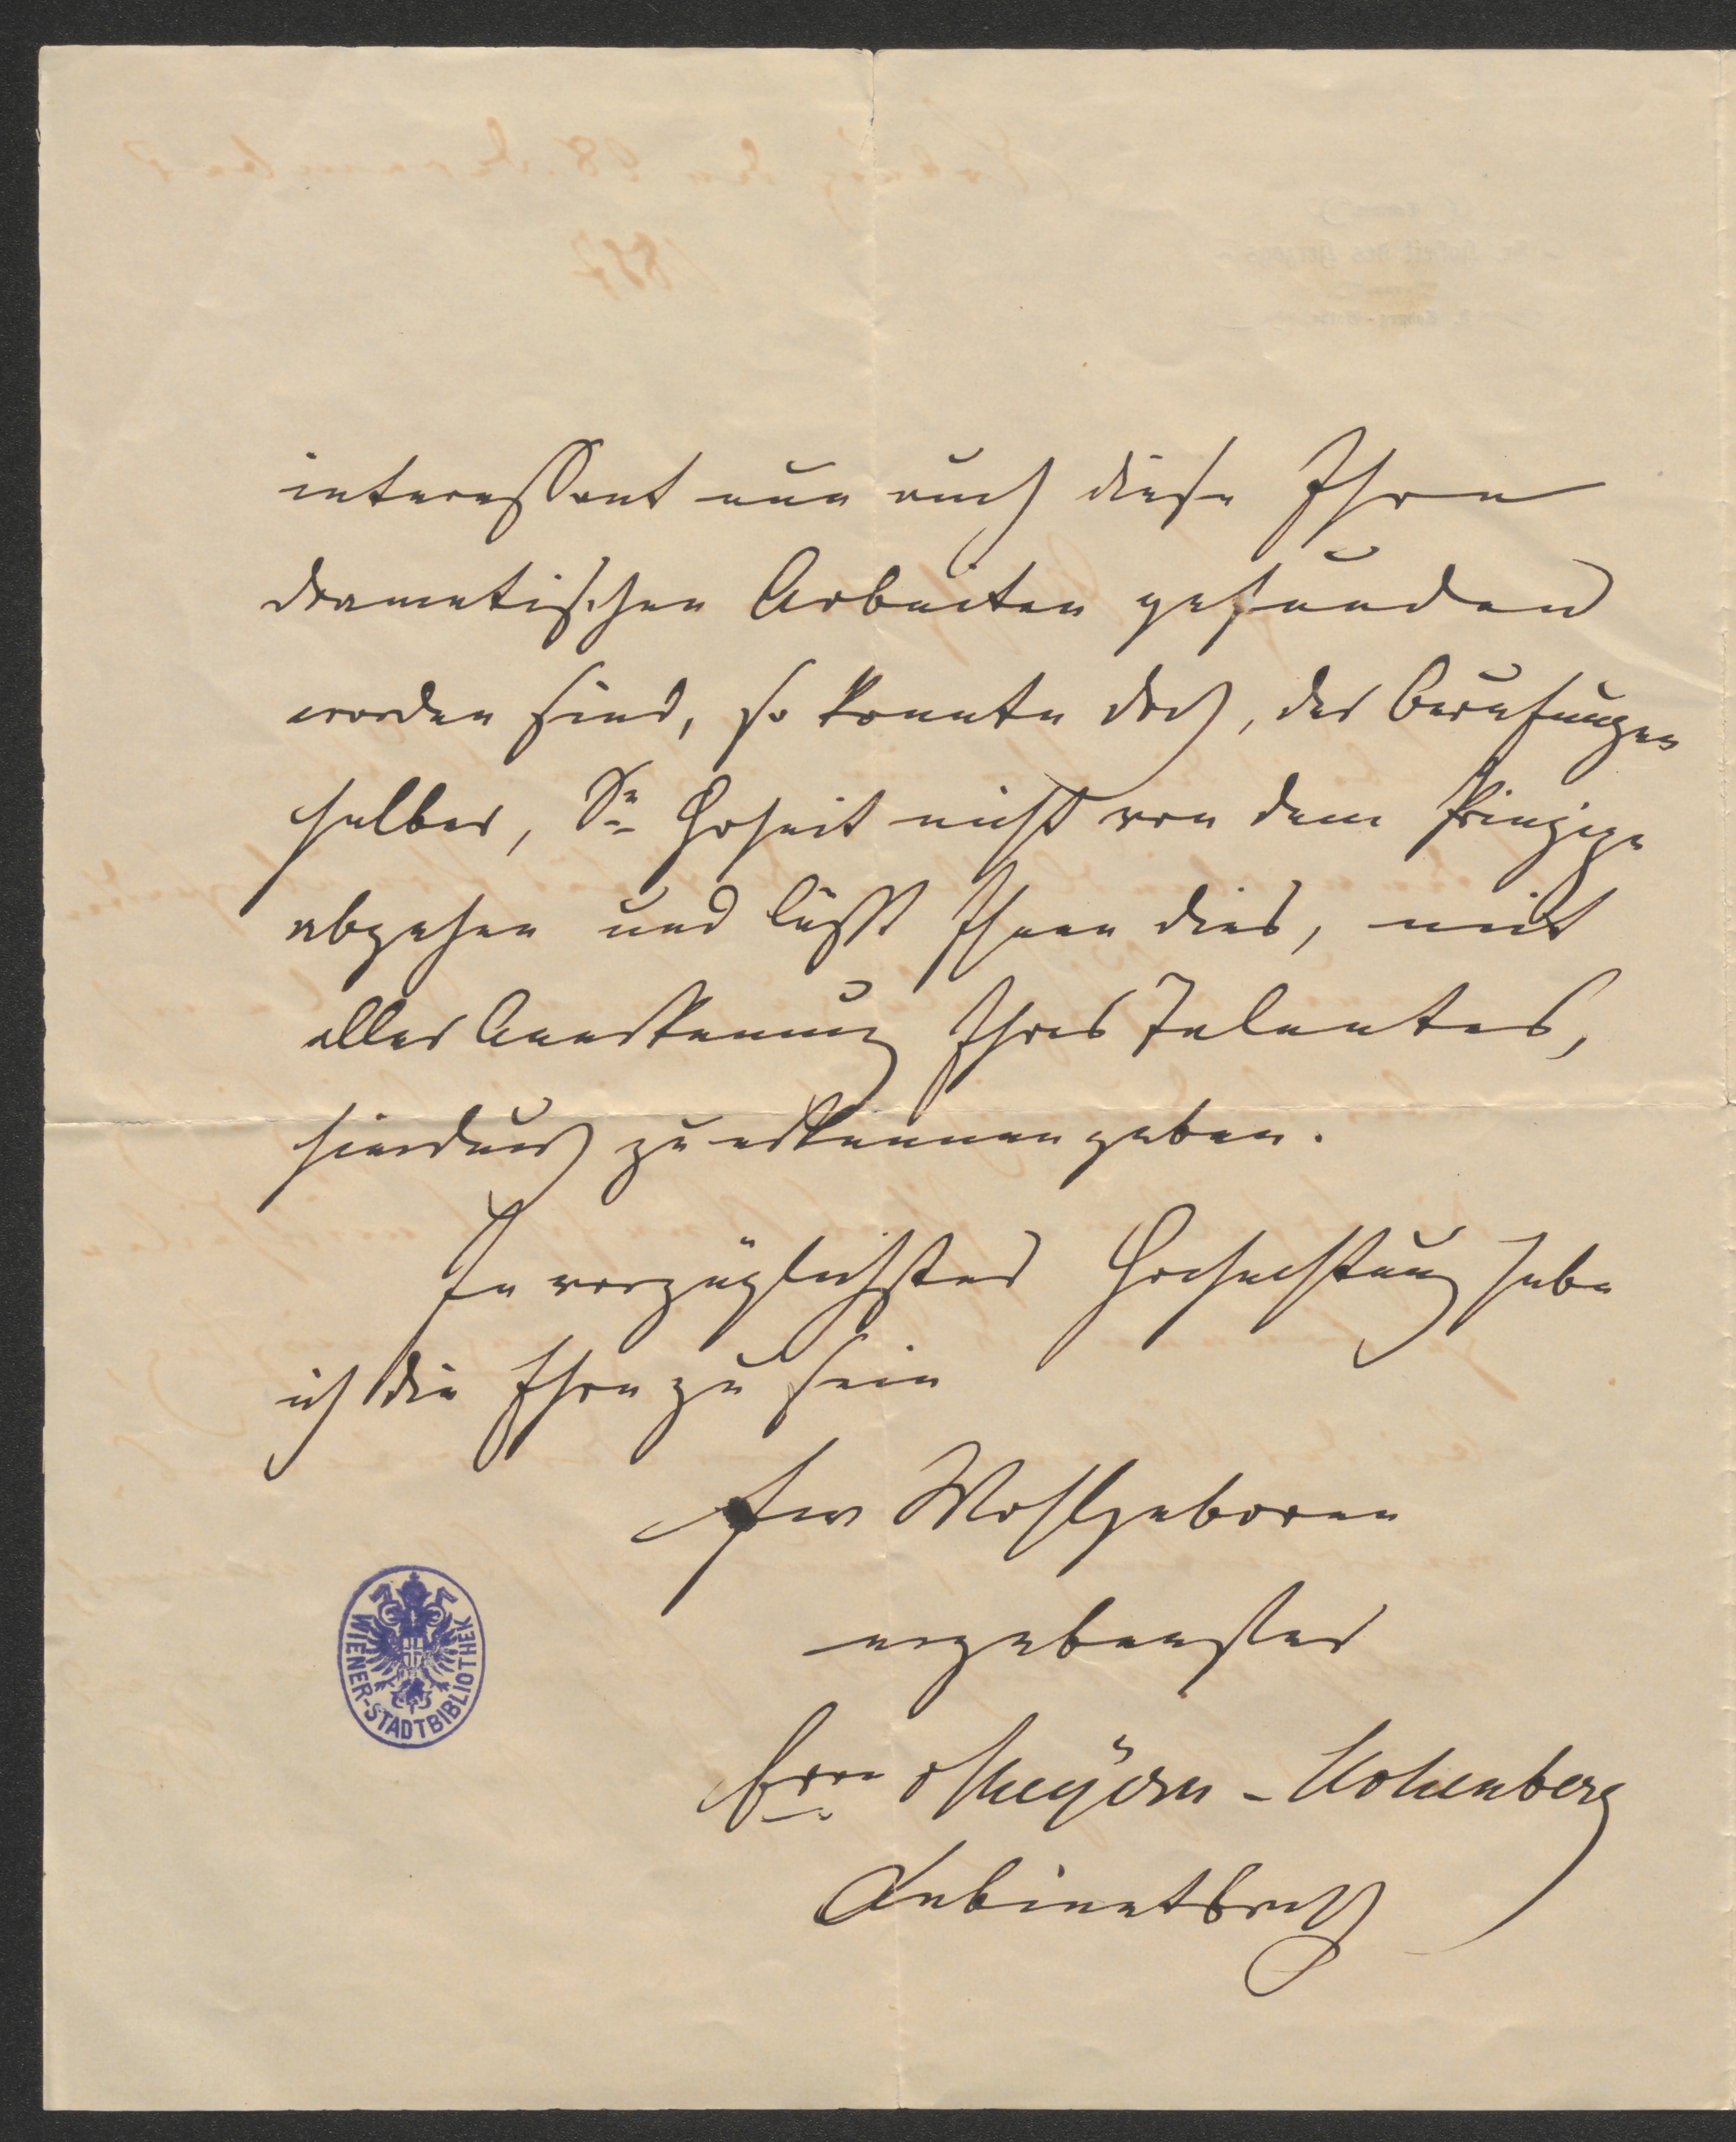 interessant nun auch diese Ihre
dramatischen Arbeiten gefunden
worden sind, so konnte doch, der Berufungen
halber, Se Hoheit nicht von dem Prinzipe
abgehen und läßt Ihnen dies, mit
aller Anerkennung Ihres Talentes,
hierdurch zu erkennen geben.
In vorzüglichster Hochachtung habe
ich die Ehre zu sein
Ew Wohlgeboren
ergebenster
Meyern-Hohenberg
Kabinetsrath
WIENER-STADTBIBLIOTHEK